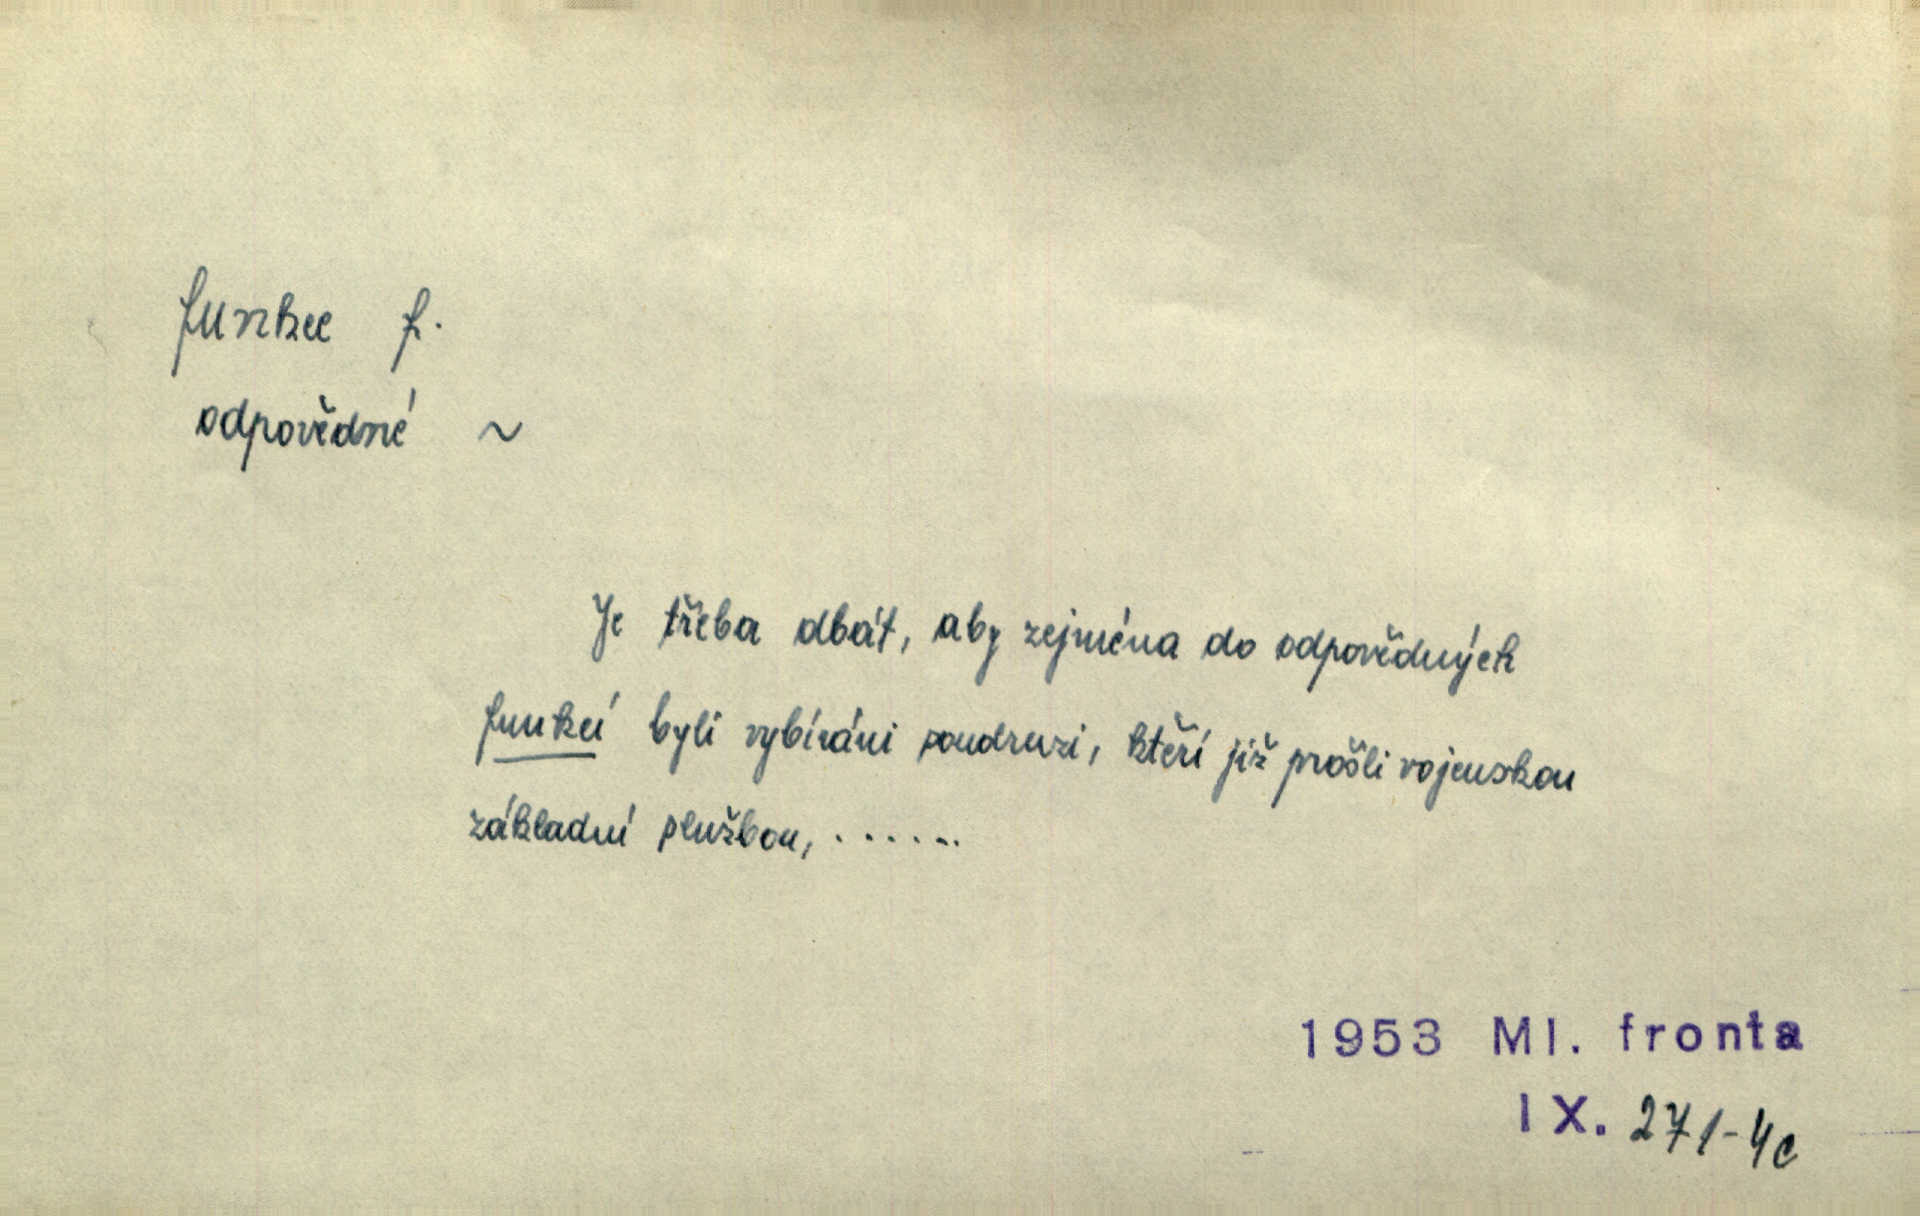 funkce f.
odpovědné ~
Je třeba dbát, aby zejména do odpovědných
funkcí byli vybíráni soudruzi, kteří již prošli vojenskou
základní službou, .......
1953 Ml. fronta
IX. 271-4c